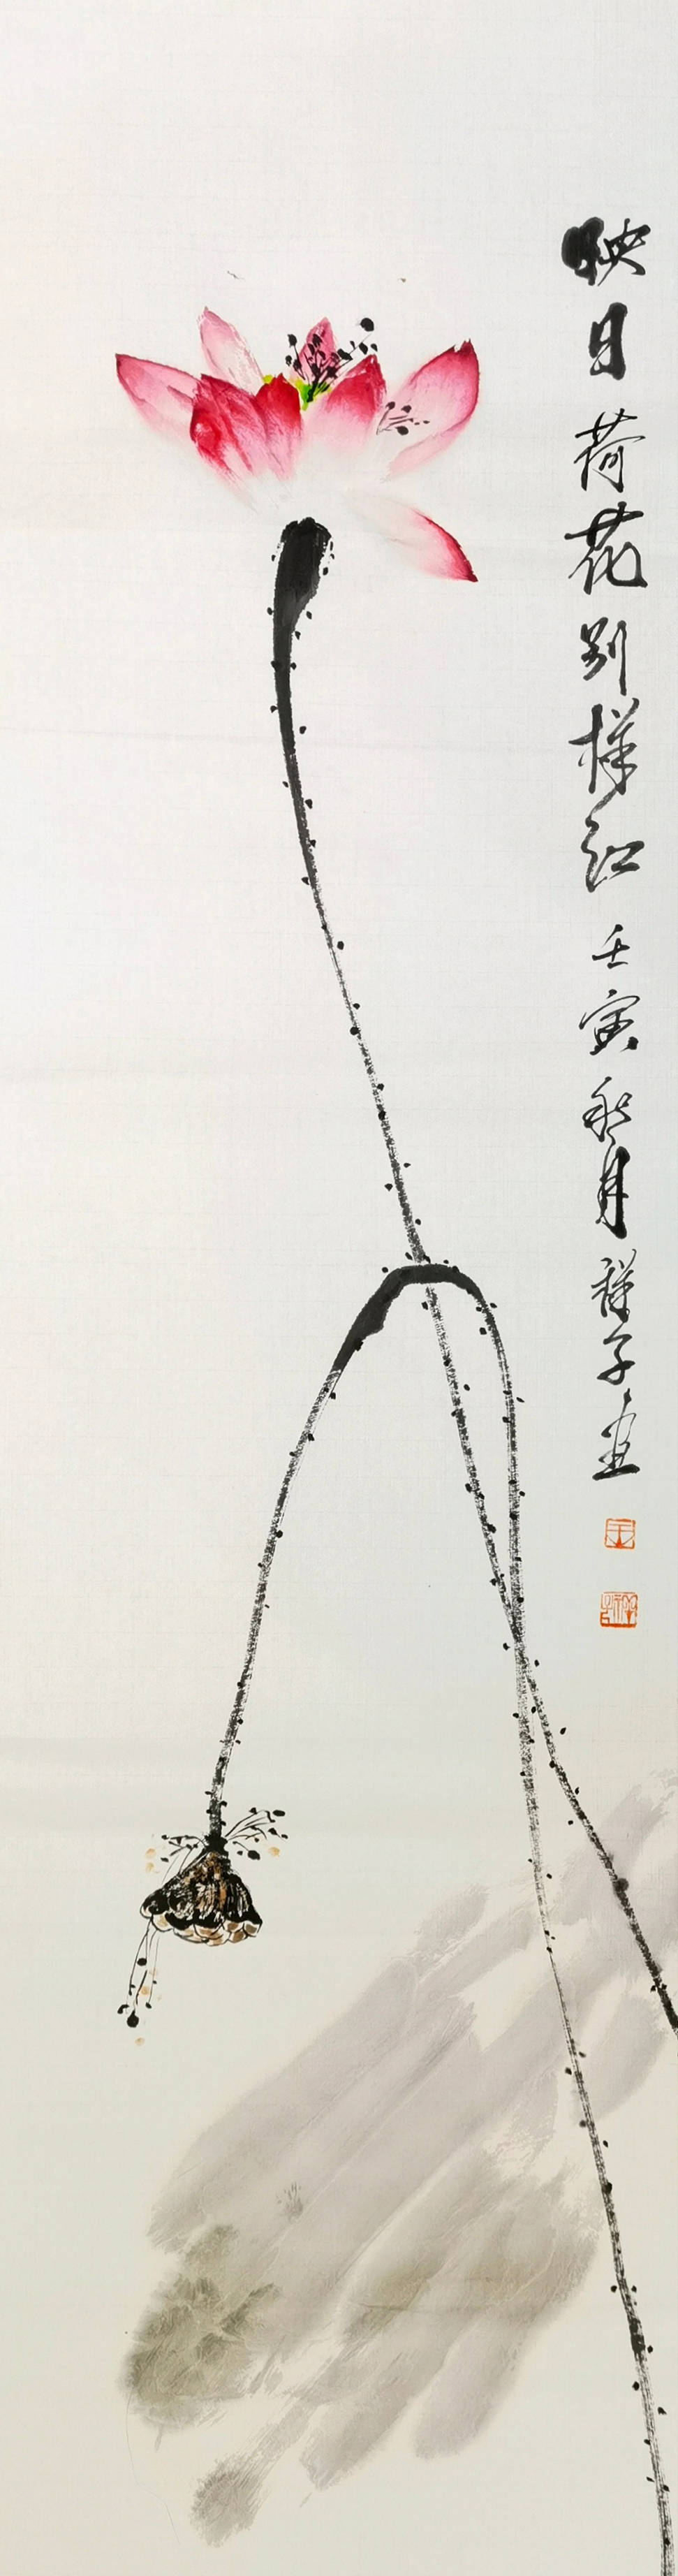 映日荷花别样红 壬寅秋月祥子画